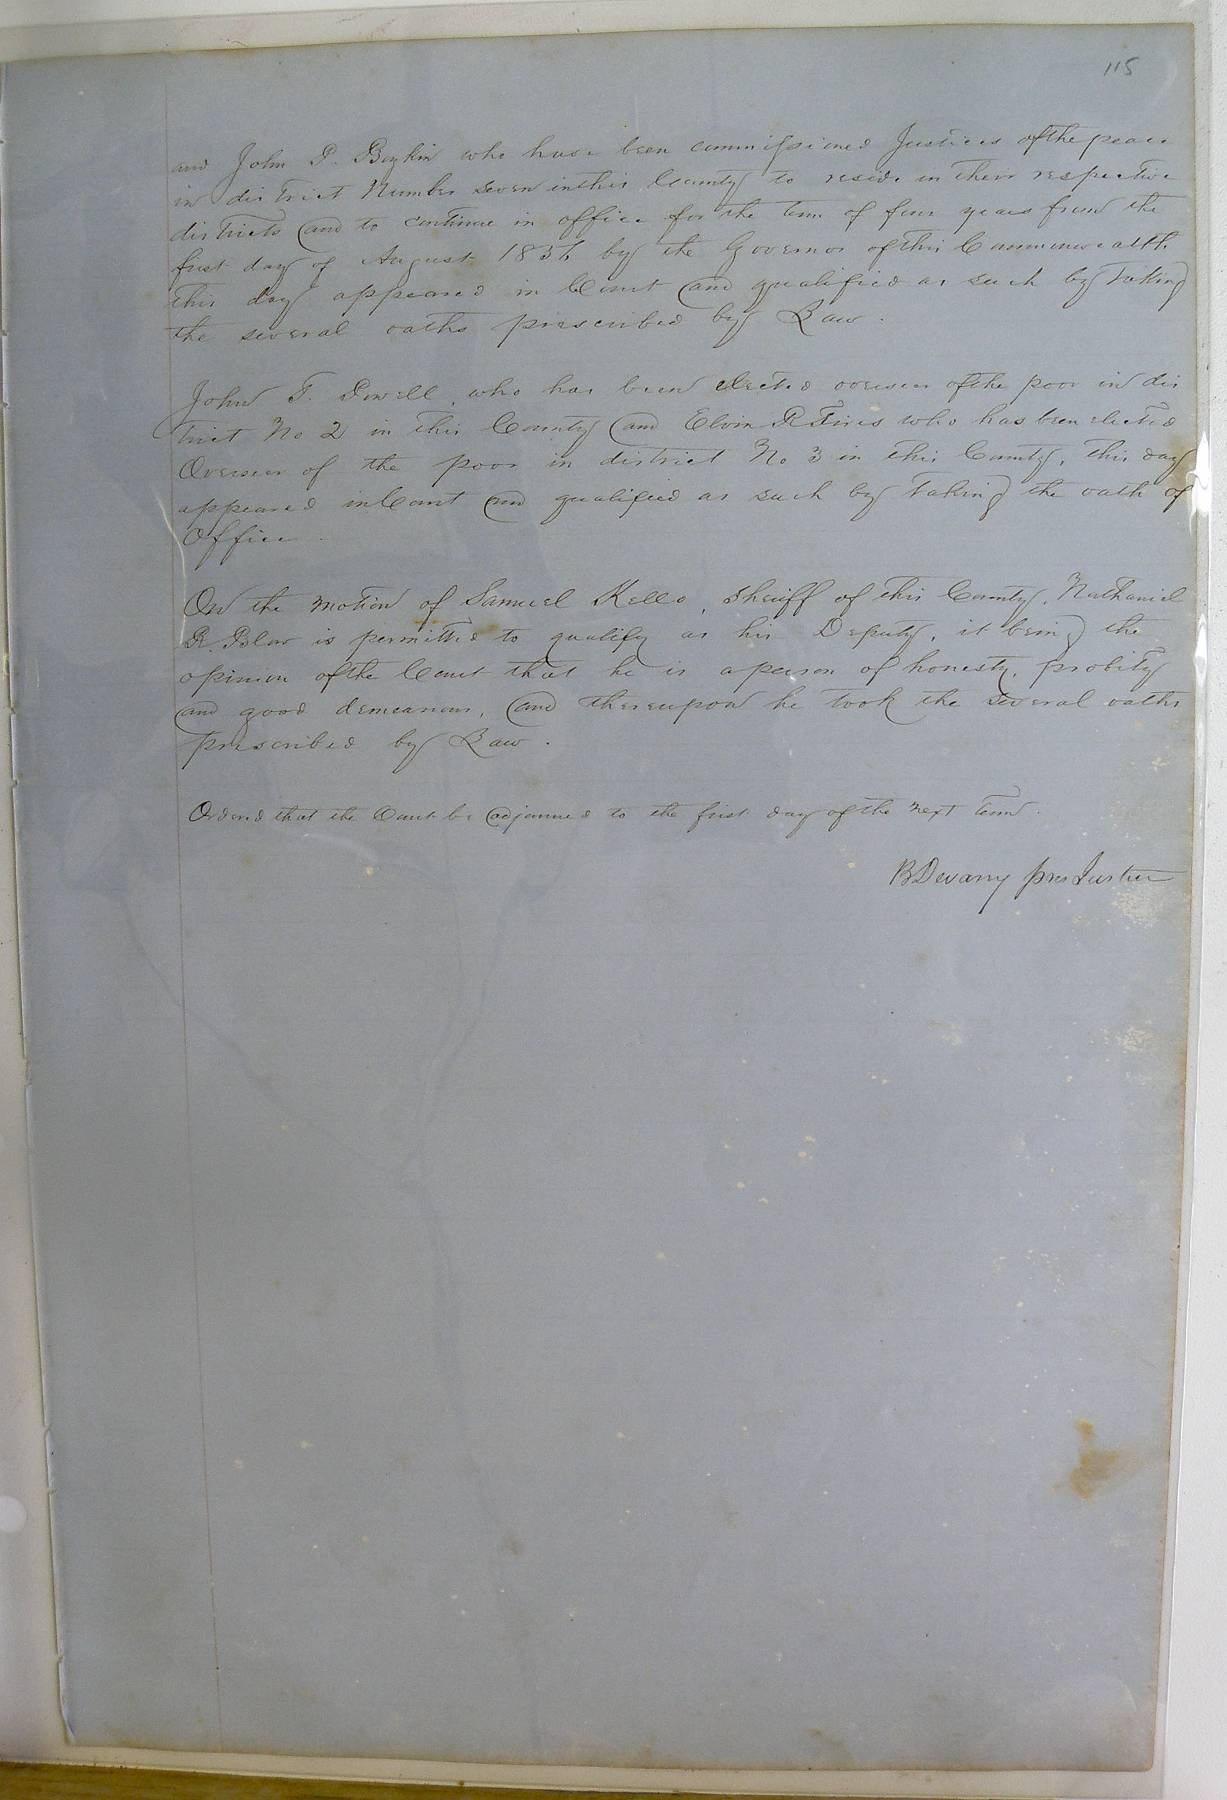 115
and John P. Boykin who have been commissioned Justices of the peace
in district Number seven in this County to reside in their respective
districts and to continue in office for the term of four years from the
first day of August by the Governor of this Commonwealth
this day appeared in Court and qualified as such by taking
the several oaths prescribed by Law.
John T. who has been elected overseer of the poor in dis
trict No 2 in this County and Elvin R who has been elected
Overseer of the poor in district No 3 in this County, this day
appeared in Court and qualified as such by taking the oath of
office.
On the motion of Samuel Kello, Sheriff of this County, Nathaniel
R. Blow is permitted to qualify as his Deputy, it being the
opinion of the Court that he is a person of honesty, probity
and good demeanour, and thereupon he took the several oaths
prescribed by Law.
Ordered that the Court be adjourned to the first day of the next term.
B Devany pres Justice